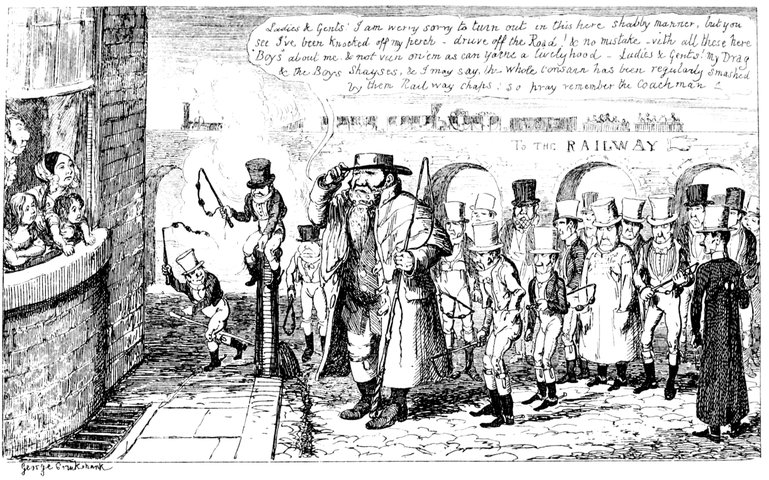 Ladies & Gents! I am werry sorry to turn out in this here shabby manner, but you
see I've been knocked off my perch - druve off the Road! & no mistake - vith all these here
"Boys" about me, & not vun on'em as can yarne a livelyhood - Ladies & Gents! my Drag
& the Boys Shayses, & I may say, the whole consarn has been regularly smashed
by them Rail way chaps! so pray remember the Coachman!
To THE RAILWAY
George Cruikshank